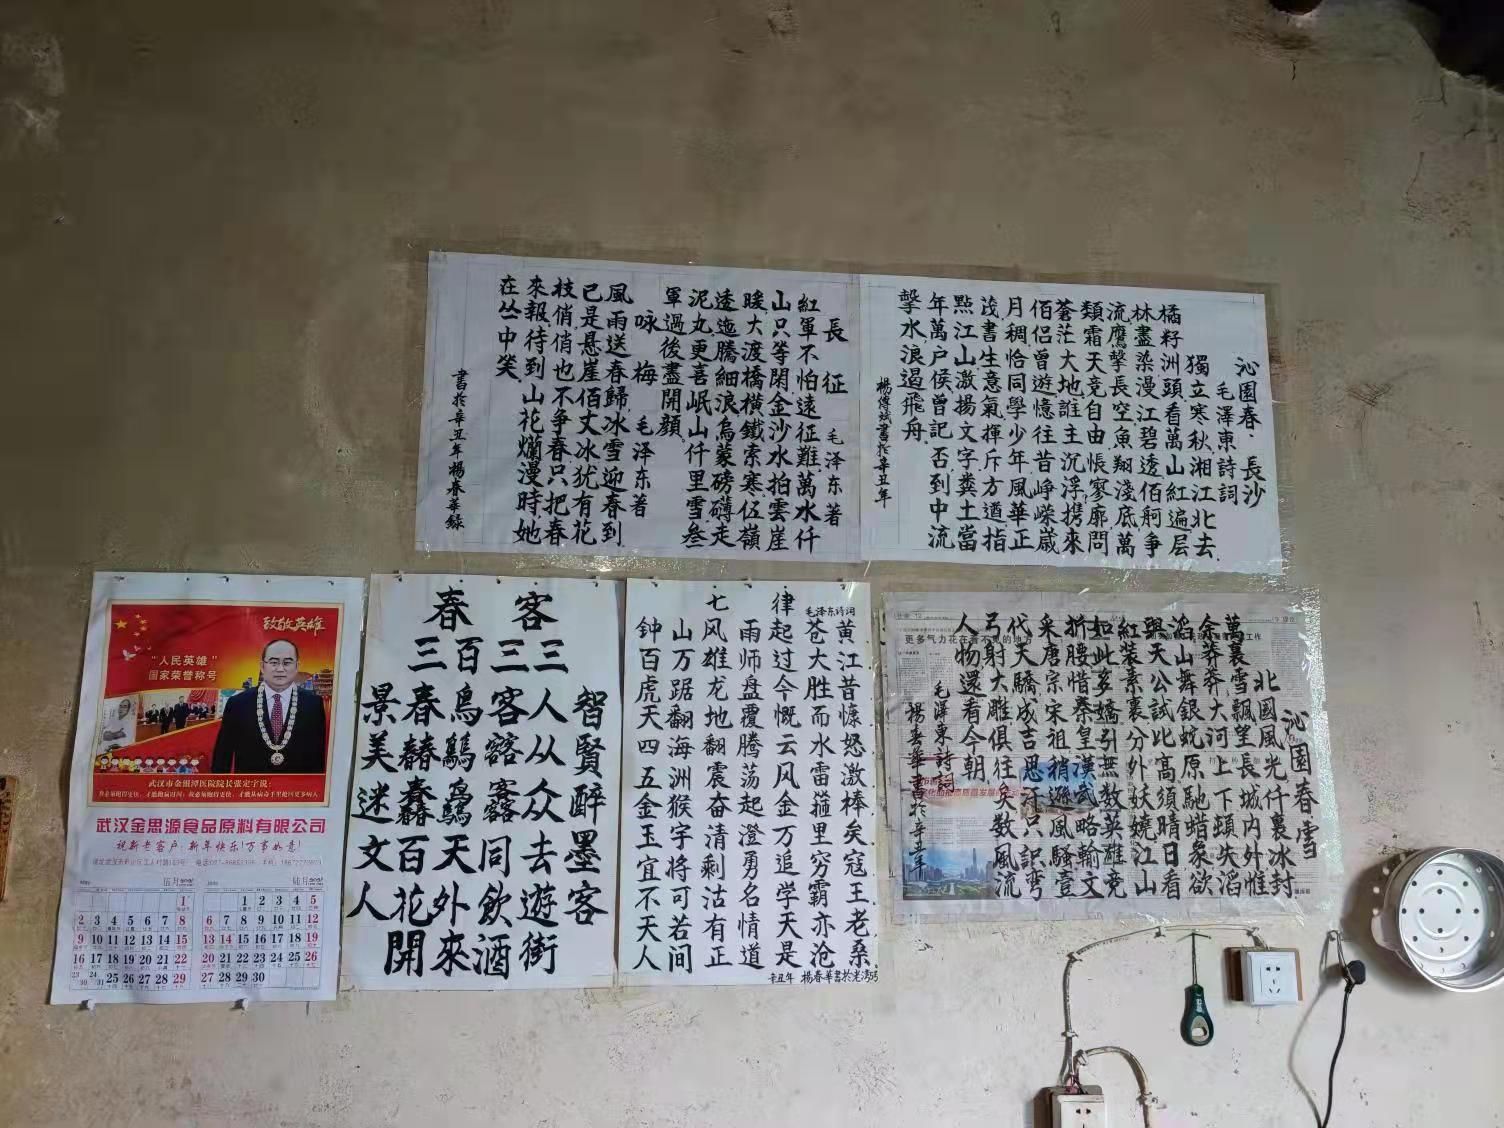 沁園春·長沙
毛澤東詩詞
獨立寒秋.湘江北去.
橘籽洲頭.看萬山紅遍层
林盡染漫江碧透佰舸争
流.鷹擊長空.魚翔淺底.萬
類霜天竞自由.悵寥廓問
蒼茫大地誰主沉浮.携來
佰侣曾遊.憶往昔峥嵘歲
月稠恰同學少年.風華正
茂.書生意氣.揮斥方遒.指
點江山.激揚文字.糞土當
年萬户侯.曾記否到中流
擊水.浪遏飛舟.
楊傳斌書於辛丑年
長征 毛泽东著
紅軍不怕遠征難萬水仟
山只等閑.金沙水拍雲崖
暖大渡橋橫鐵索寒.伍嶺
逶迤騰細浪.烏蒙磅礴走
泥丸.更喜岷山仟里雪.叁
軍過後盡開顔.
咏梅 毛泽东著
風雨送春歸.冰雪迎春到
已是悬崖佰丈冰犹有花
枝俏.俏也不争春只把春
來報.待到山花爛漫時她
在丛中笑.
書於辛丑年楊春華録
致敬英雄
“人民英雄”
国家荣誉称号
武汉市金银潭医院院长张定宇说：
武汉金思源食品原料有限公司
祝新老客户：新年快乐！万事如意！
伍月
陆月
1
2 3 4 5 6 7 8
9 10 11 12 13 14 15
16 17 18 19 20 21 22
23/30 24/31 25 26 27 28 29
1 2 3 4 5
6 7 8 9 10 11 12
13 14 15 16 17 18 19
20 21 22 23 24 25 26
27 28 29 30
春客
智賢醉墨客
三人从众去遊街
三客同飲酒
百鳥天外來
三春百花開
景美迷文人
毛泽东诗词
七律
黄江昔慷怒激棒矣寇王老桑
苍大胜而水雷箍里穷霸亦沧
起过今慨云风金万追学天是
雨师盘覆腾荡起澄勇名情道
风雄龙地翻震奋清剩沽有正
山万踞翻海洲猴宇将可若间
钟百虎天四五金玉宜不天人
辛丑年 楊春華書於
沁園春雪
北國風光仟裏冰封
萬裏雪飄.望長城内外惟
余莽莽.大河上下頓失滔
滔山舞銀蛇原馳蜡象欲
與天公試比高.須晴日看
紅装素裹分外妖嬈.江山
如此多嬌引無数英雄竞
折腰惜秦皇漢武略輸文
采.唐宗宋祖稍遜風騷.壹
代天驕成吉思汗只識彎
弓射大雕.俱往矣数風流
人物還看今朝.
毛澤東詩詞
楊春華書於辛丑年
更多气力花在看不见的地方